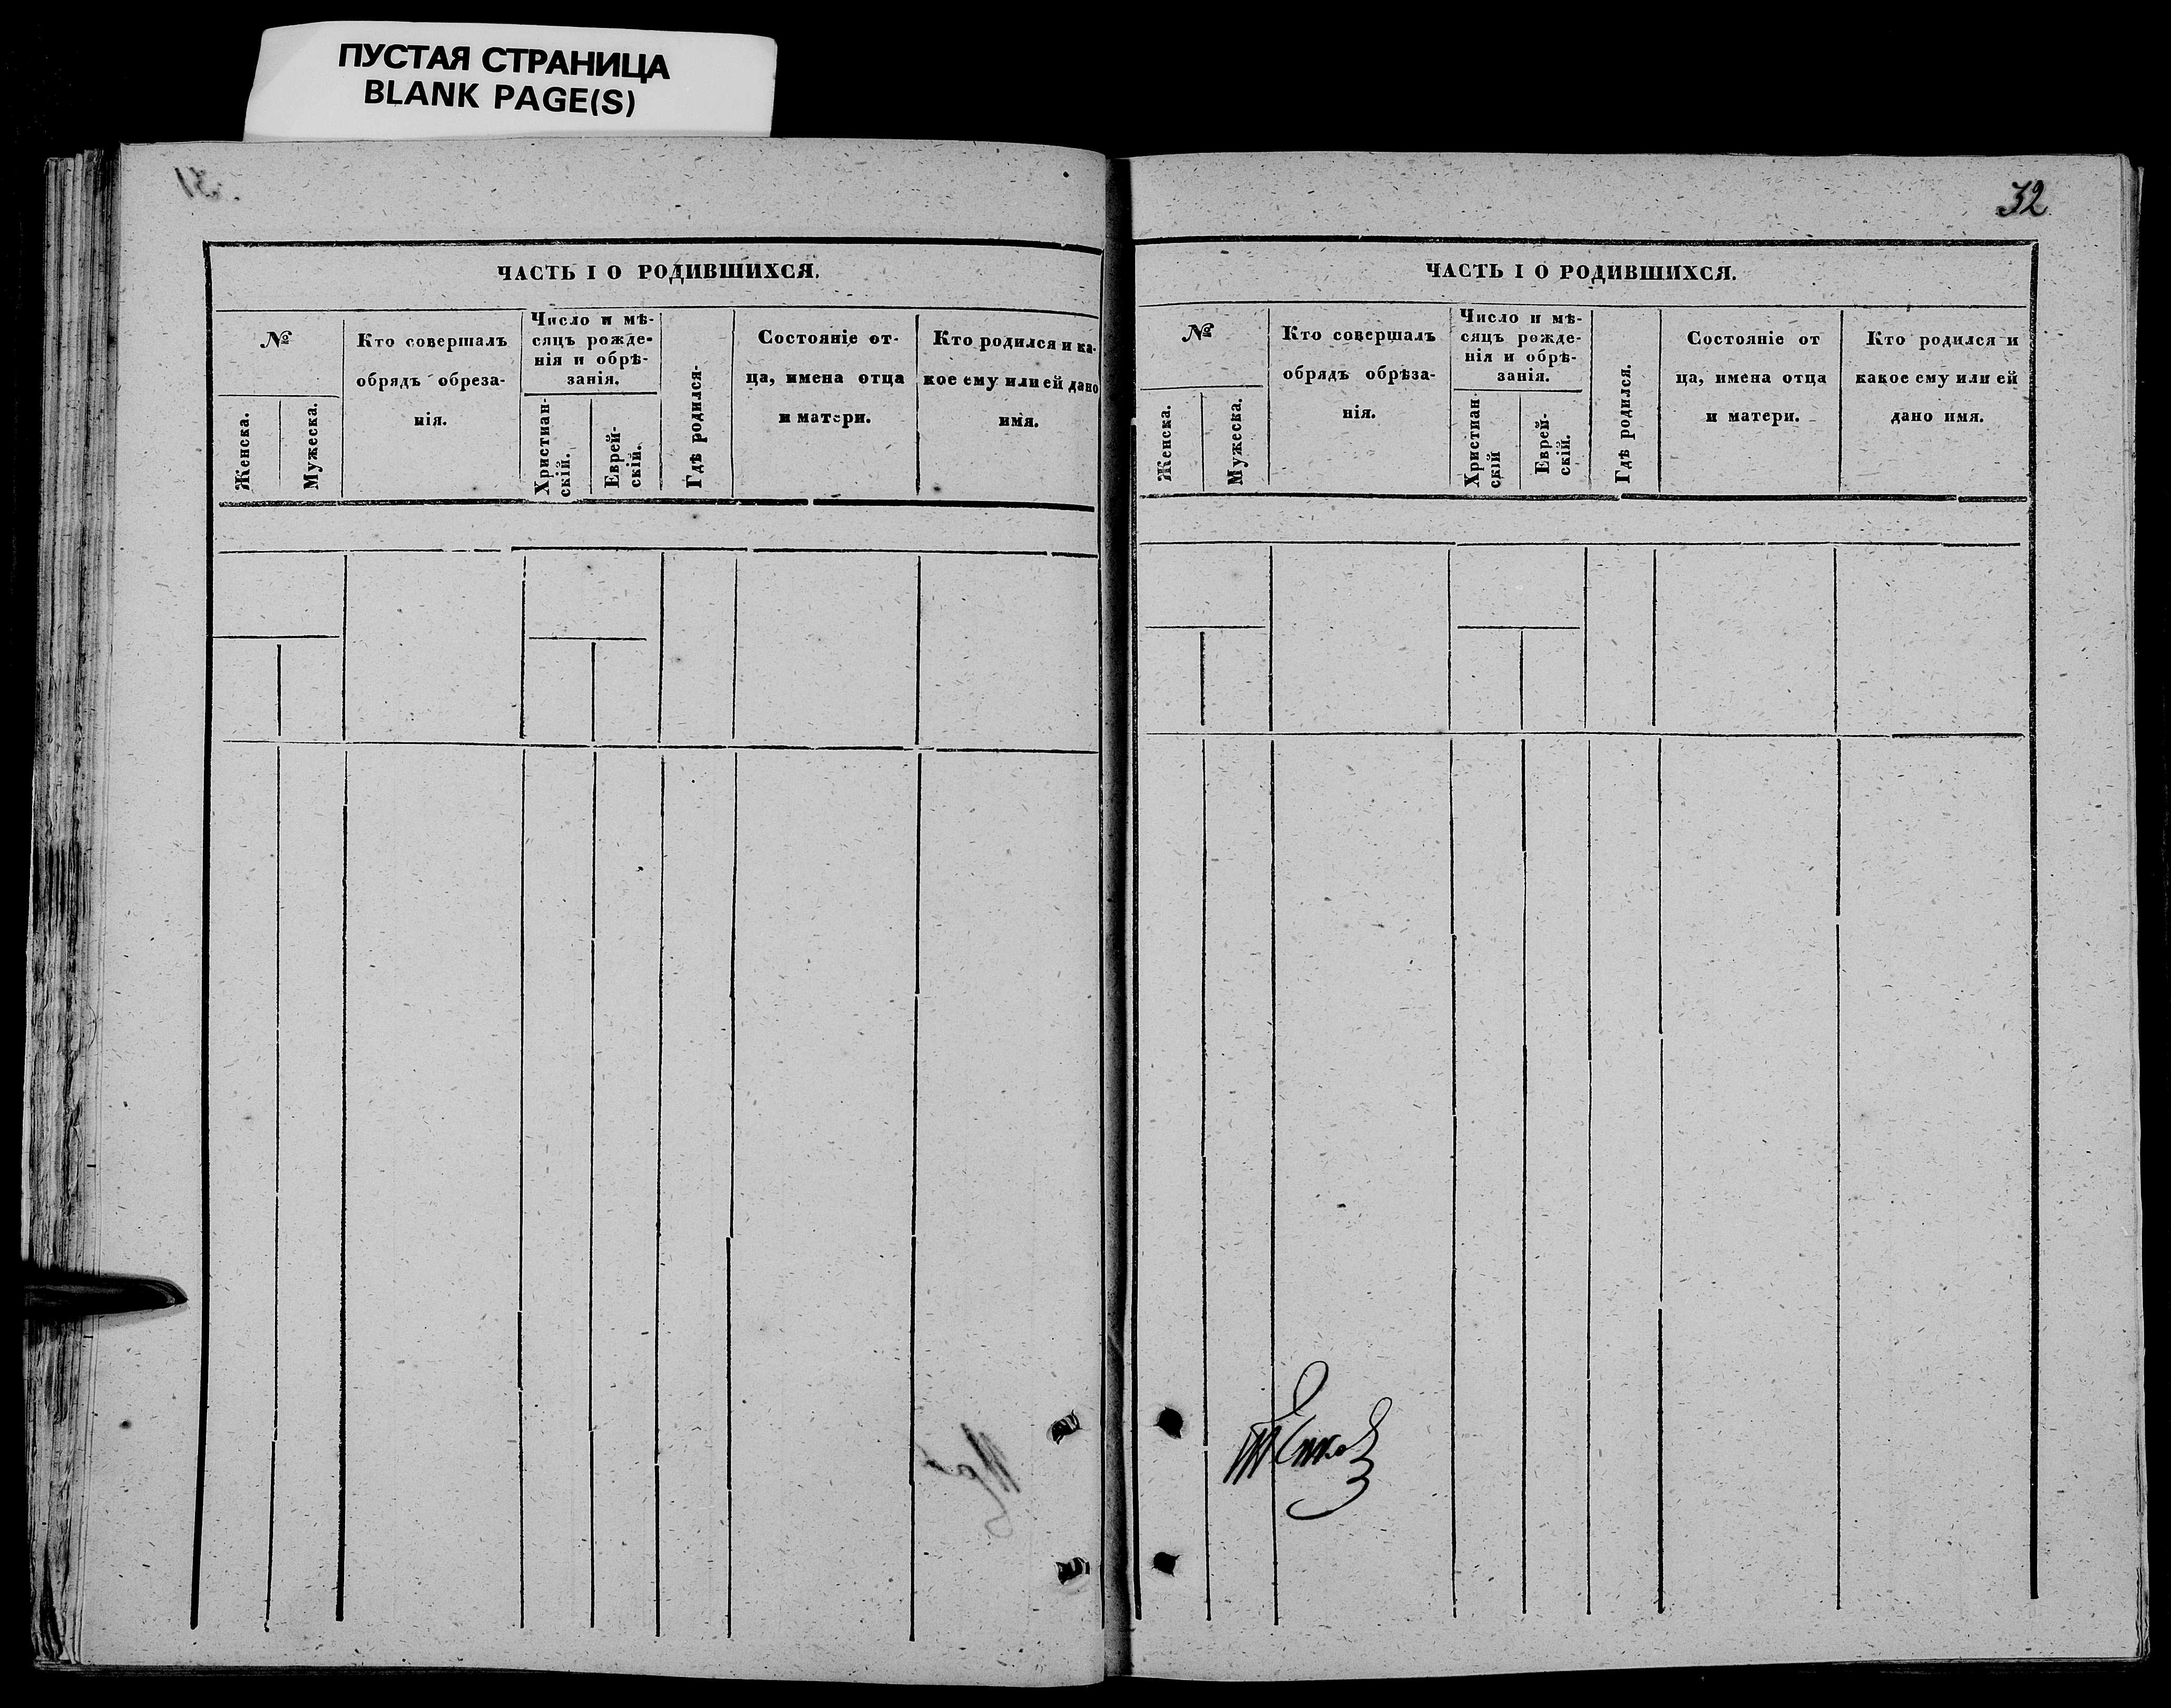 ПУСТАЯ СТРАНИЦА
BLANK PAGE(S)
ЧАСТЬ I О РОДИВШИХСЯ.
№
Женска.
Мужеска.
Кто совершалъ
обрядъ обреза-
нія.
Число и мѣ-
сяцъ рожде-
нія и обрѣ-
занія.
Христиан-
скій.
Еврей-
скій.
Гдѣ родился-
Состояніе от-
ца, имена отца
и матери.
Кто родился и ка-
кое ему или ей дано
имя.
32
ЧАСТЬ I О РОДИВШИХСЯ.
№
Женска.
Мужеска.
Кто совершалъ
обрядъ обрѣза-
нія.
Число и мѣ-
сяцъ рожде-
нія и обрѣ-
занія.
Христиан
скій
Еврей-
скій.
Гдѣ родился.
Состояніе от
ца, имена отца
и матери.
Кто родился и
какое ему или ей
дано имя.